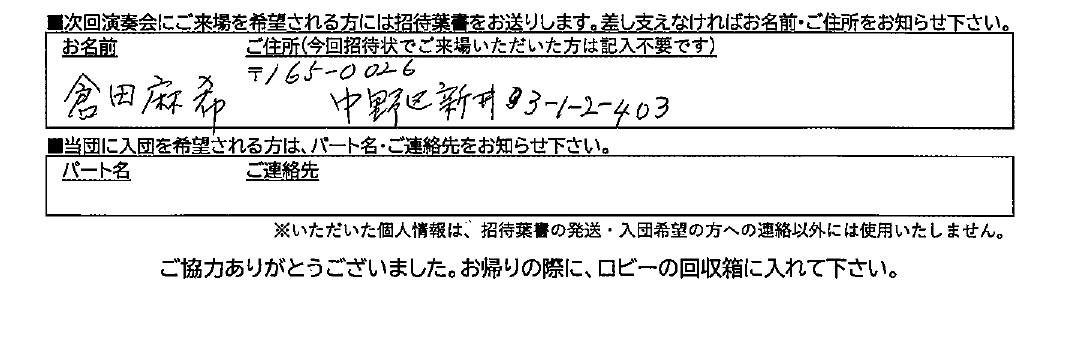 ■次回演奏会にご来場を希望される方には招待葉書をお送りします。差し支えなければお名前・ご住所をお知らせ下さい。
お名前 ご住所(今回招待状でご来場いただいた方は記入不要です)
〒165-0026
倉田麻希 中野区新井3-1-2-403
■当団に入団を希望される方は、パート名・ご連絡先をお知らせ下さい。
パート名 ご連絡先
※いただいた個人情報は、招待葉書の発送・入団希望の方への連絡以外には使用いたしません。
ご協力ありがとうございました。お帰りの際に、ロビーの回収箱に入れて下さい。